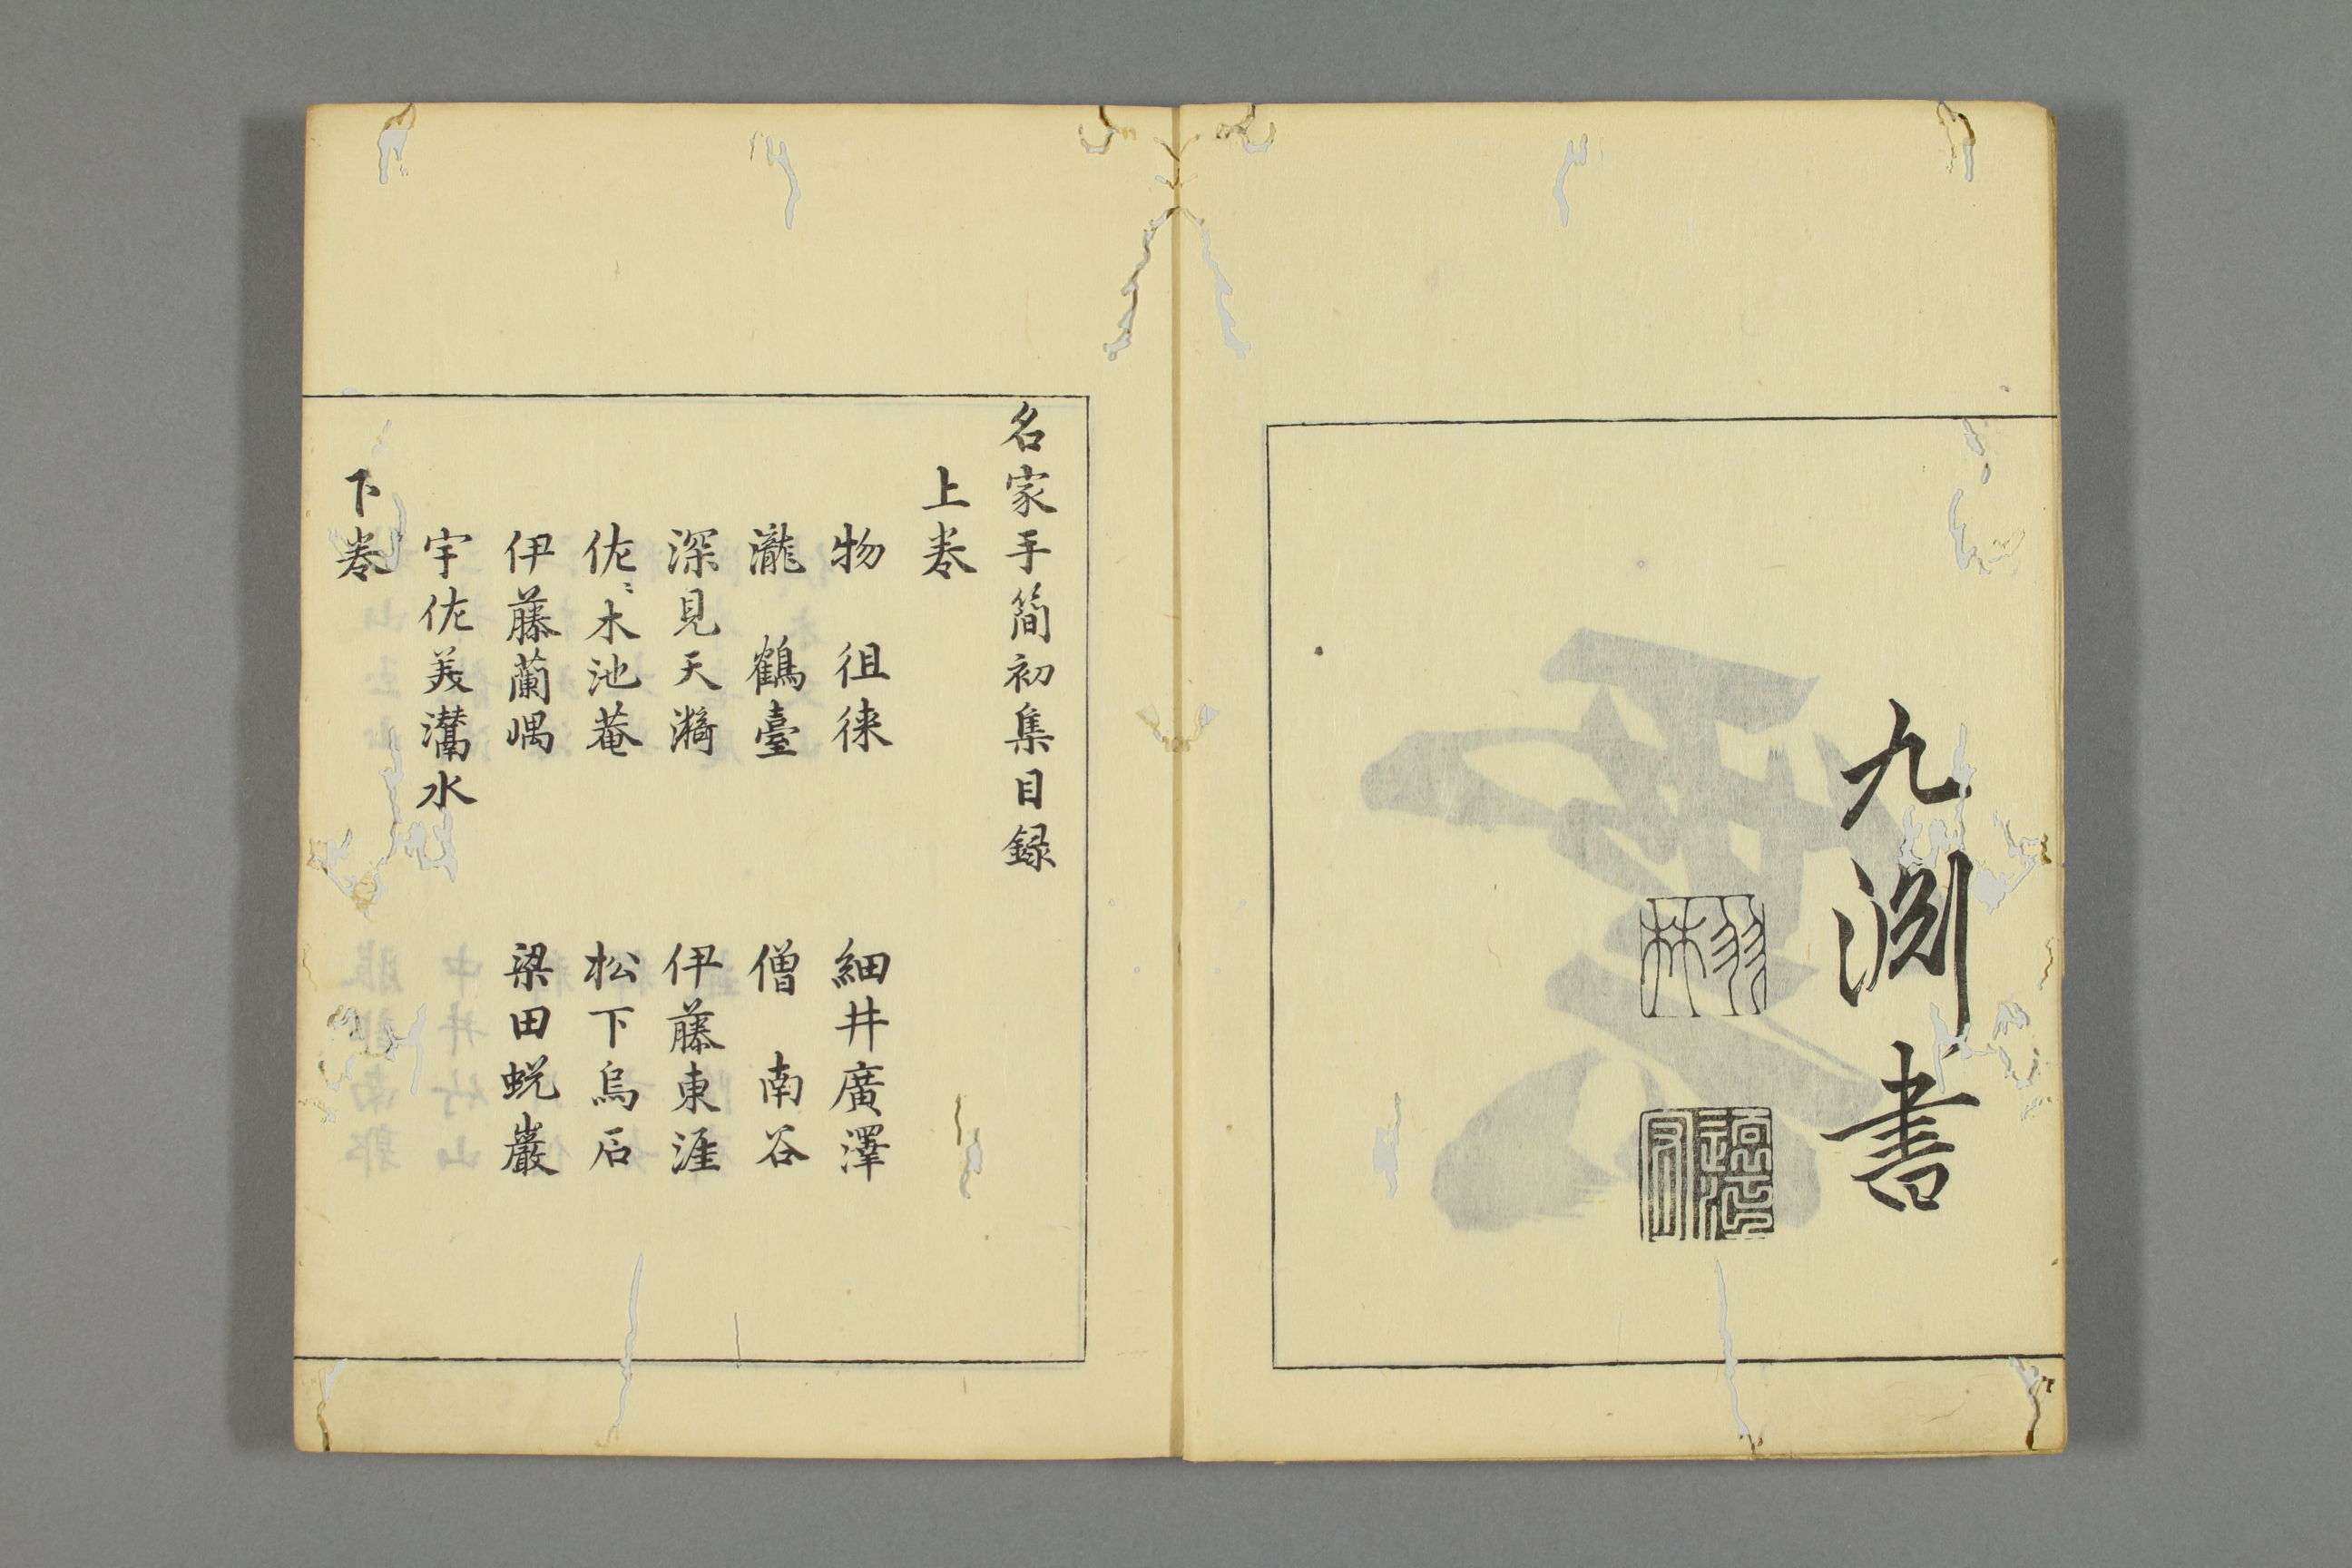 九渕書
羽林
名家手簡初集目録
上巻
物　徂徠　細井廣澤
瀧　鶴臺　僧　南谷
深見天漪　伊藤東涯
佐〻木池菴　松下烏石
伊藤蘭嵎　梁田蛻巖
宇佐美灊水
下巻